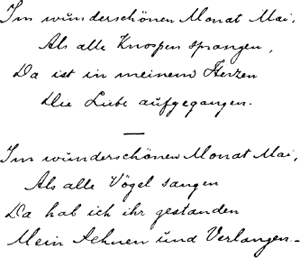 Im wünderschönen Monat Mai,
Als alle Knospen sprangen,
Da ist in meinem Herzen
Die Liebe aufgegangen.
Im wünderschönen Monat Mai,
Als alle Vögel sangen
Da hab ich ihr gestanden
Mein Sehnen und Verlangen.